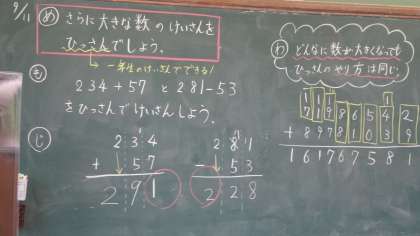 9/11
め さらに大きな数のけいさんを
ひっさんでしょう。
一年生のけいさんでできる!
も
234+57 と 281-53
をひっさんでけいさんしょう。
じ
234
+ 57
291
281
- 53
228
わ どんなに数が大きくなっても
ひっさんのやり方は同じ。
+
161767581